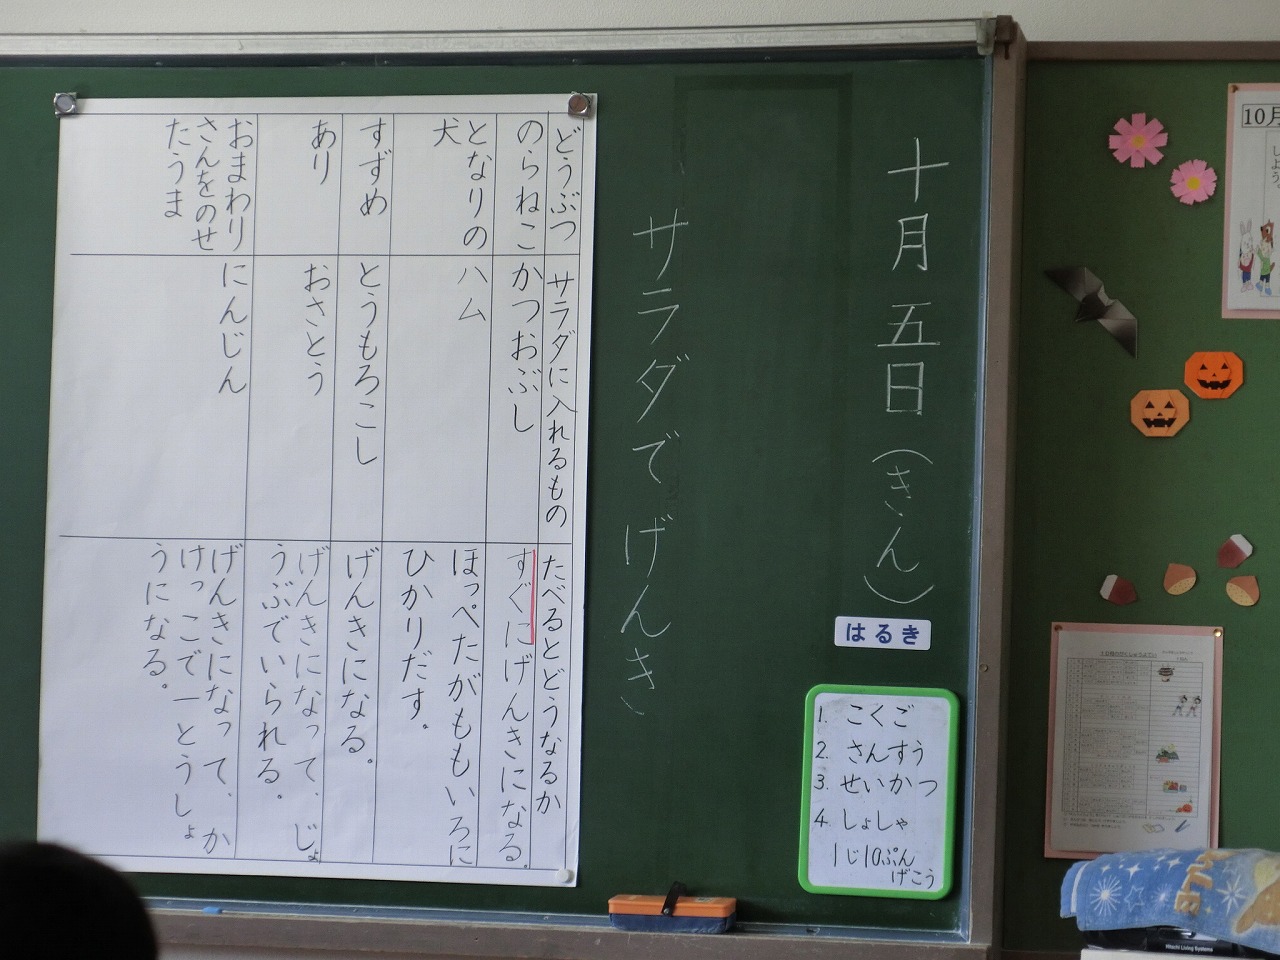 十月五日(きん)
はるき
サラダでげんき
どうぶつ
サラダに入れるもの
たべるとどうなるか
のらねこ
かつおぶし
すぐにげんきになる。
となりの
犬
ハム
ほっぺたがももいろに
ひかりだす。
すずめ
とうもろこし
げんきになる。
あり
おさとう
げんきになって、じょ
うぶでいられる。
おまわり
さんをのせ
たうま
にんじん
げんきになって、か
けっこで一とうしょ
うになる。
1. こくご
2. さんすう
3. せいかつ
4. しょしゃ
1じ10ぷん
げこう
10月
Hitachi Living Systems